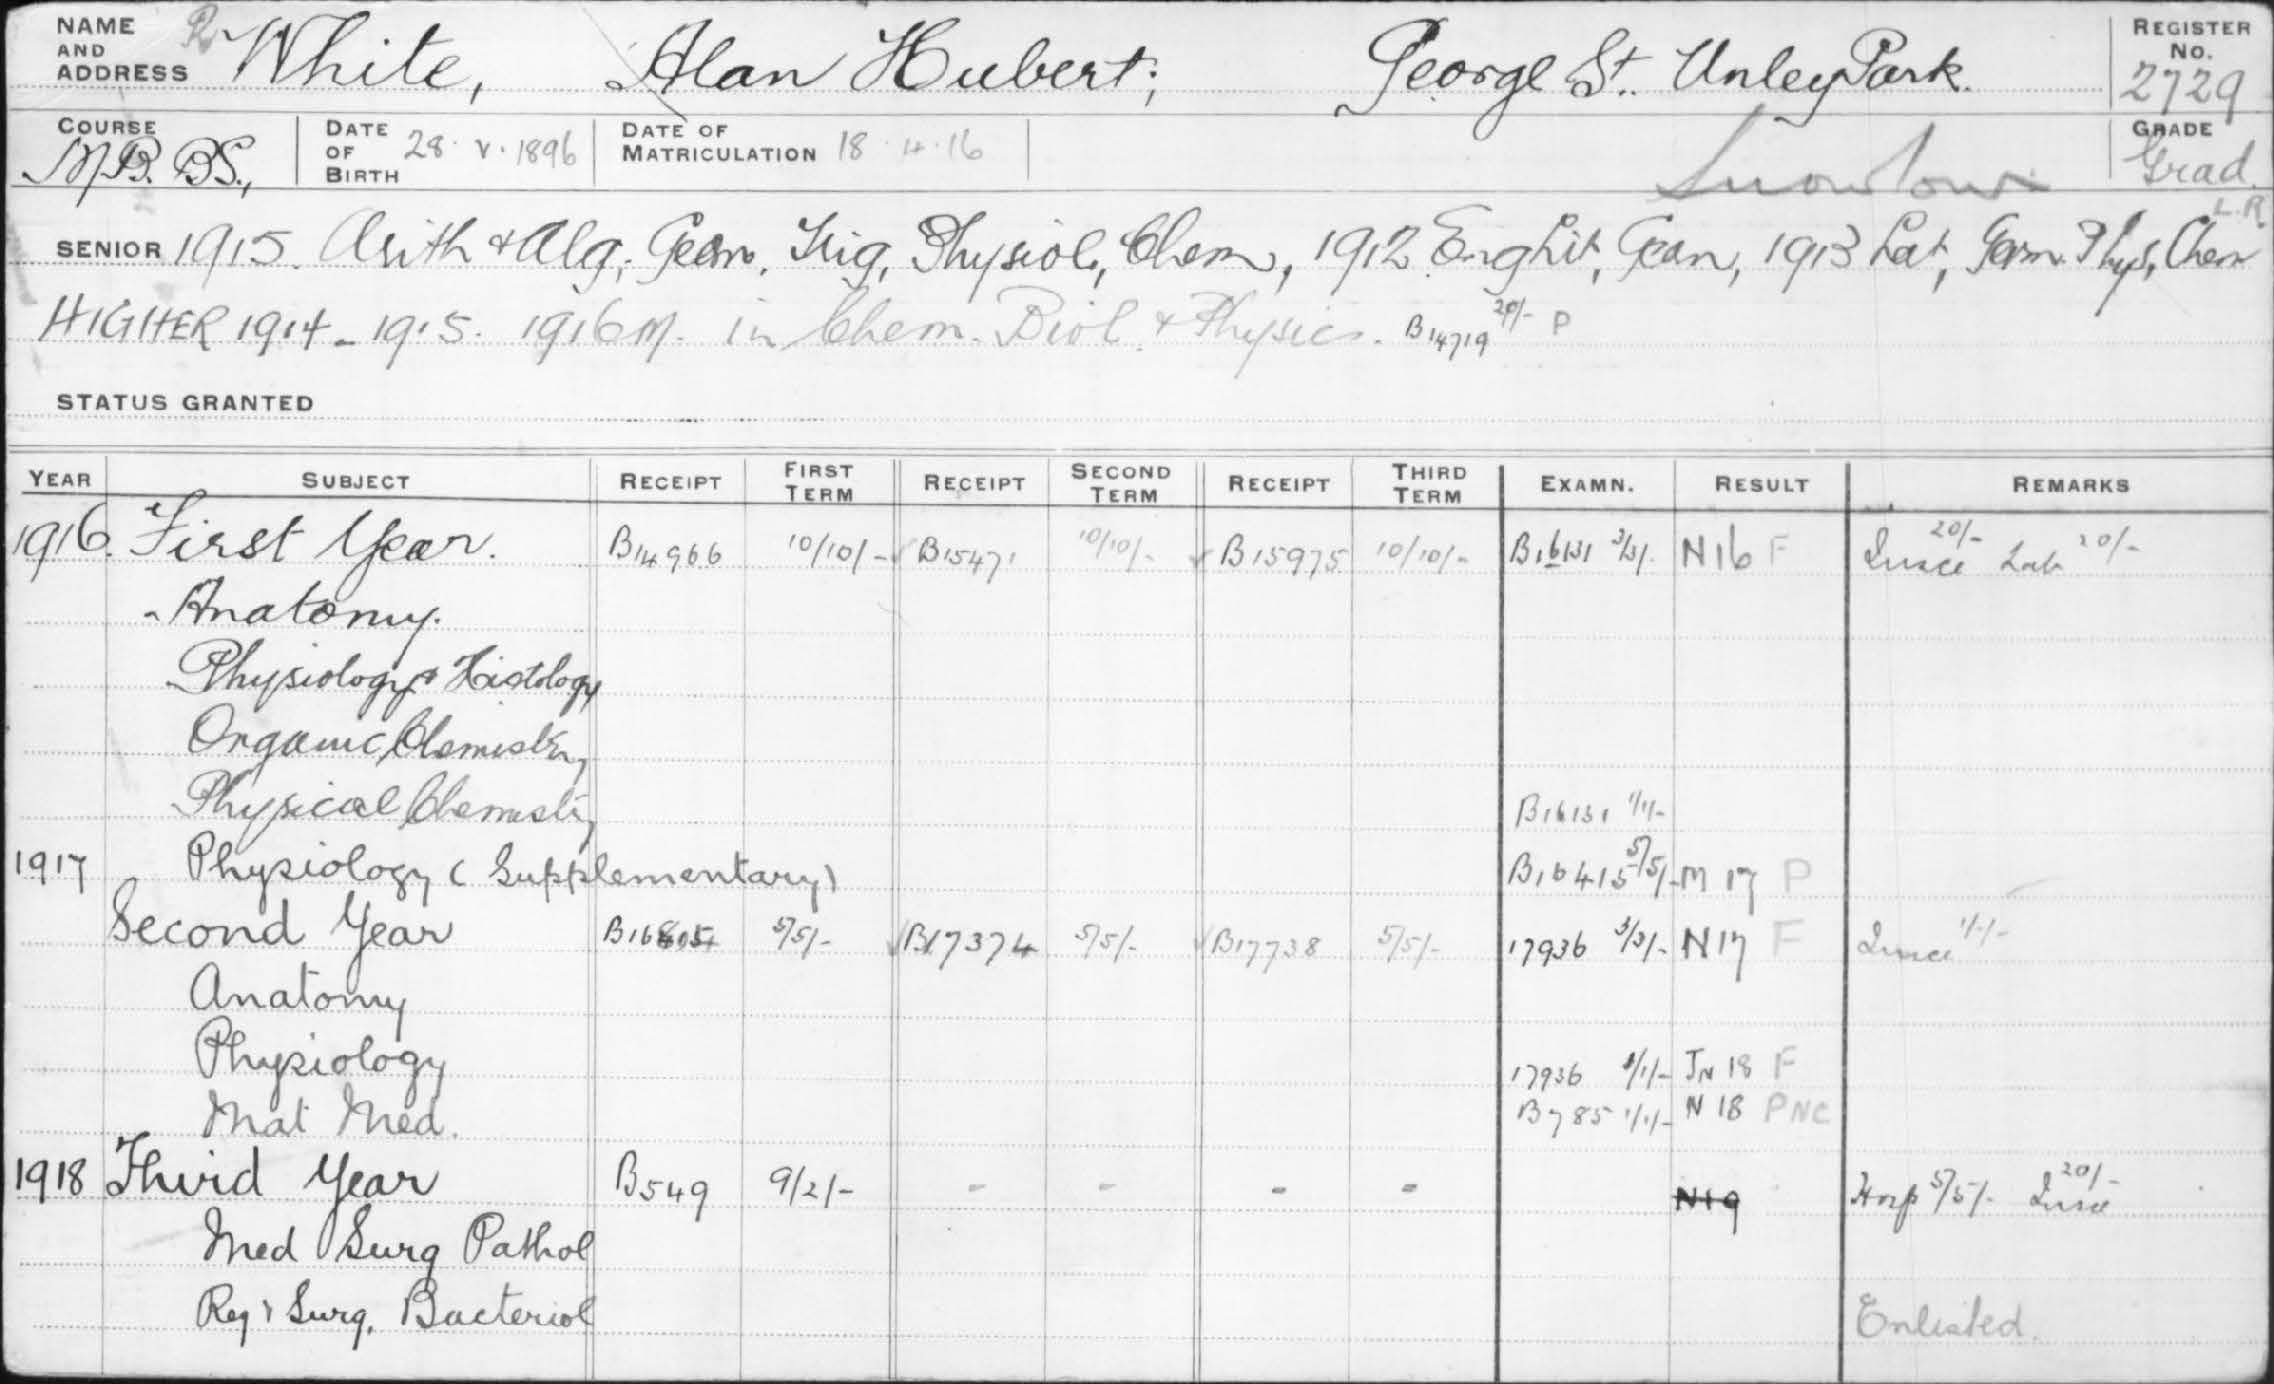 NAME AND ADDRESS White, Alan Hubert; George St. Unley Park. REGISTER No. 2729
COURSE M.B. B.S., DATE OF BIRTH 28.V.1896 DATE OF MATRICULATION 18.4.16 Snowtown GRADE Grad.
L.R.
SENIOR 1915. Arith & Alg, Geom, Trig, Physiol, Chem, 1912 Eng Lit, Geom, 1913 Lat, Germ. Phys, Chem
HIGHER 1914 - 1915. 1916 M. in Chem. Biol. & Physics. B14719 20/- P
STATUS GRANTED
YEAR SUBJECT RECEIPT FIRST TERM RECEIPT SECOND TERM RECEIPT THIRD TERM EXAMN. RESULT REMARKS
1916. First Year. B14966 10/10/- B15471 10/10/- B15975 10/10/- B16131 3/3/- N16 F Insce 20/- Lab 20/-
Anatomy.
Physiology & Histology
Organic Chemistry
Physical Chemistry B16131 1/1/-
1917 Physiology (Supplementary) B16415 5/5/- M 17 P
Second Year 5/5/- B17374 5/5/- B17738 5/5/- 17936 3/3/- N17 F Insce 1/-/-
Anatomy
Physiology 17936 1/1/- JN 18 F
Mat Med. B785 1/1/- N 18 PNC
1918 Third Year B549 9/2/- - - - - N19 Hosp 5/5/- Insce 20/-
Med Surg Pathol
Reg & Surg. Bacteriol Enlisted.